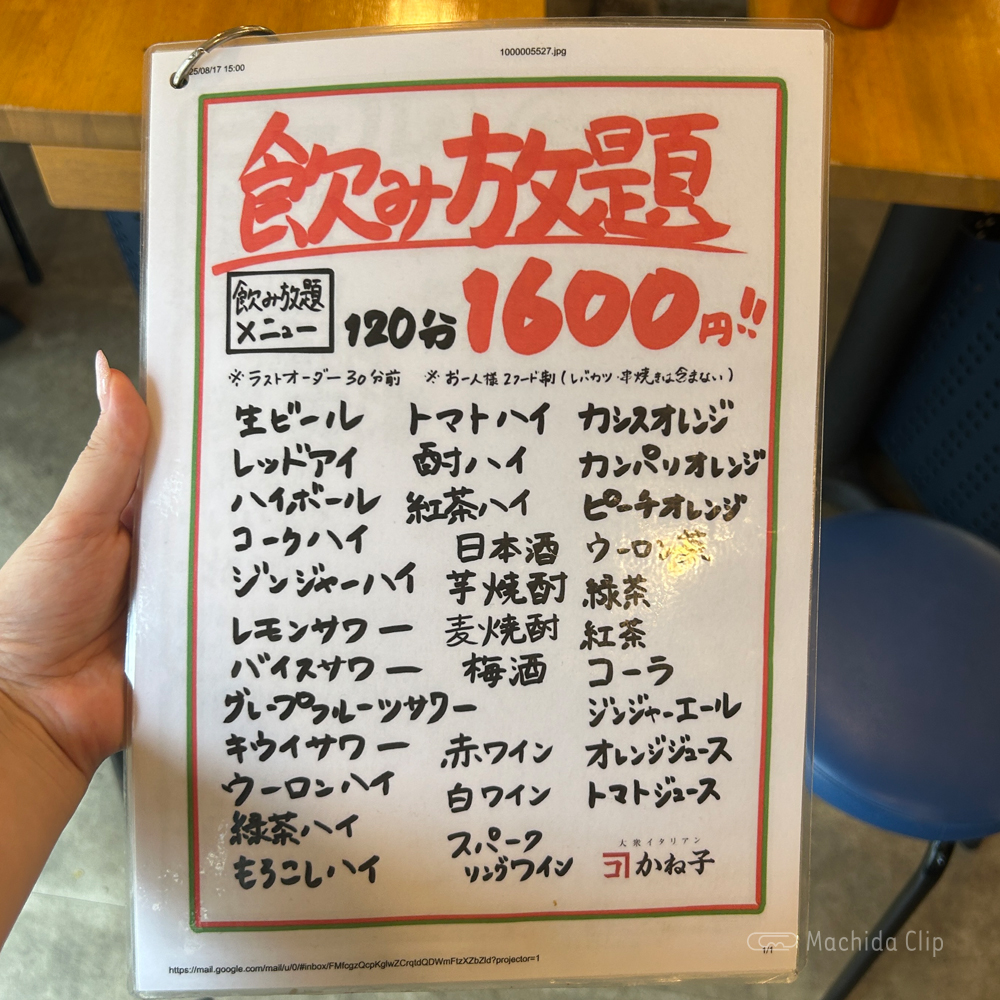 25/08/17 15:00
1000005527.jpg
飲み放題
飲み放題
メニュー
120分 1600円!!
※ラストオーダー30分前 ※お一人様2フード制(レバカツ・串焼きは含まない)
生ビール
レッドアイ
ハイボール
コークハイ
ジンジャーハイ
レモンサワー
バイスサワー
グレープフルーツサワー
キウイサワー
ウーロンハイ
緑茶ハイ
もろこしハイ
トマトハイ
酎ハイ
紅茶ハイ
日本酒
芋焼酎
麦焼酎
梅酒
赤ワイン
白ワイン
スパーク
リングワイン
カシスオレンジ
カンパリオレンジ
ピーチオレンジ
ウーロン茶
緑茶
紅茶
コーラ
ジンジャーエール
オレンジジュース
トマトジュース
大衆イタリアン
かね子
Machida Clip
1/1
https://mail.google.com/mail/u/0/#inbox/FMfcgzQcpKglwZCrqtdQDWmFtzXZbZld?projector=1